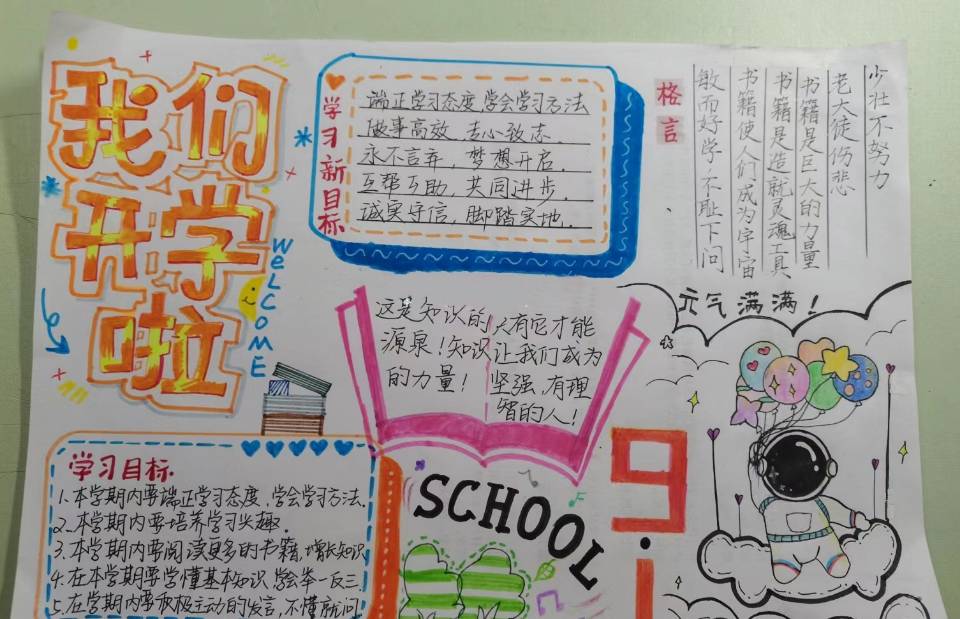 我们
开学
啦
WeLCOME
学习新目标
端正学习态度,学会学习方法
做事高效,专心致志.
永不言弃,梦想开启.
互帮互助,共同进步.
诚实守信,脚踏实地.
格言
少壮不努力
老大徒伤悲
书籍是巨大的力量
书籍是造就灵魂工具
书籍使人们成为宇宙
敏而好学,不耻下问
元气满满!
这是知识的
源泉!知识
的力量!
人有它才能
让我们成为
坚强,有理
智的人!
学习目标
1.本学期内要端正学习态度,学会学习方法.
2.本学期内要培养学习兴趣.
3.本学期内要阅读更多的书籍,增长知识
4.在本学期要学懂基本知识,学会举一反三
5.在学期内要积极主动的发言,不懂就问
SCHOOL
9.1